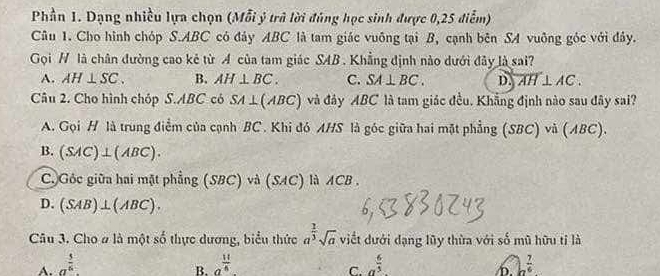 Phần 1. Dạng nhiều lựa chọn (Mỗi ý trả lời đúng học sinh được 0,25 điểm)
Câu 1. Cho hình chóp S.ABC có đáy ABC là tam giác vuông tại B, cạnh bên SA vuông góc với đáy.
Gọi H là chân đường cao kẻ từ A của tam giác SAB. Khẳng định nào dưới đây là sai?
A. AH ⊥ SC. B. AH ⊥ BC. C. SA ⊥ BC. D. AH ⊥ AC.
Câu 2. Cho hình chóp S.ABC có SA ⊥ (ABC) và đáy ABC là tam giác đều. Khẳng định nào sau đây sai?
A. Gọi H là trung điểm của cạnh BC. Khi đó AHS là góc giữa hai mặt phẳng (SBC) và (ABC).
B. (SAC) ⊥ (ABC).
C. Góc giữa hai mặt phẳng (SBC) và (SAC) là ACB.
D. (SAB) ⊥ (ABC).
6,53830243
Câu 3. Cho a là một số thực dương, biểu thức a^{2/3}√a viết dưới dạng lũy thừa với số mũ hữu tỉ là
A. a^{5/6}. B. a^{11/6}. C. a^{6/5}. D. a^{7/6}.